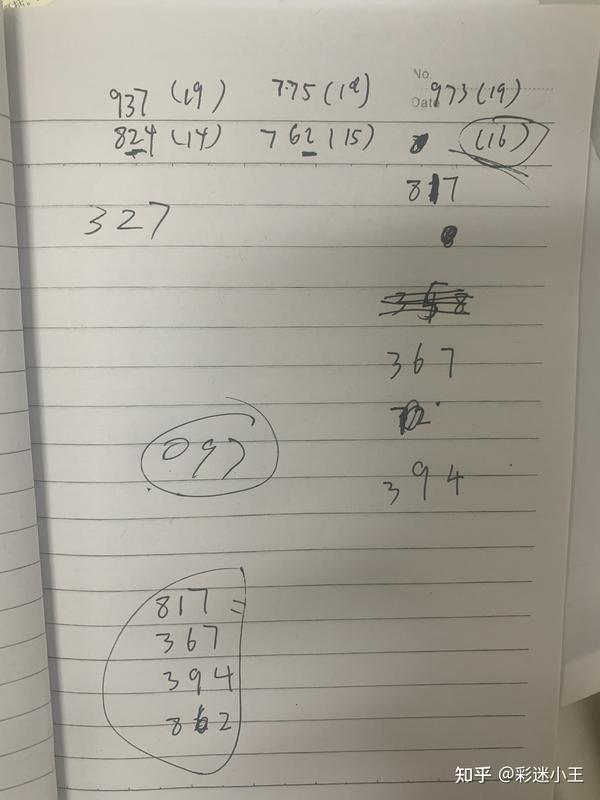 No.
937 (19) 775 (19) 973 (19)
Date
824 (14) 762 (15) (16)
817
327
367
097
394
817 =
367
394
862
知乎 @彩迷小王